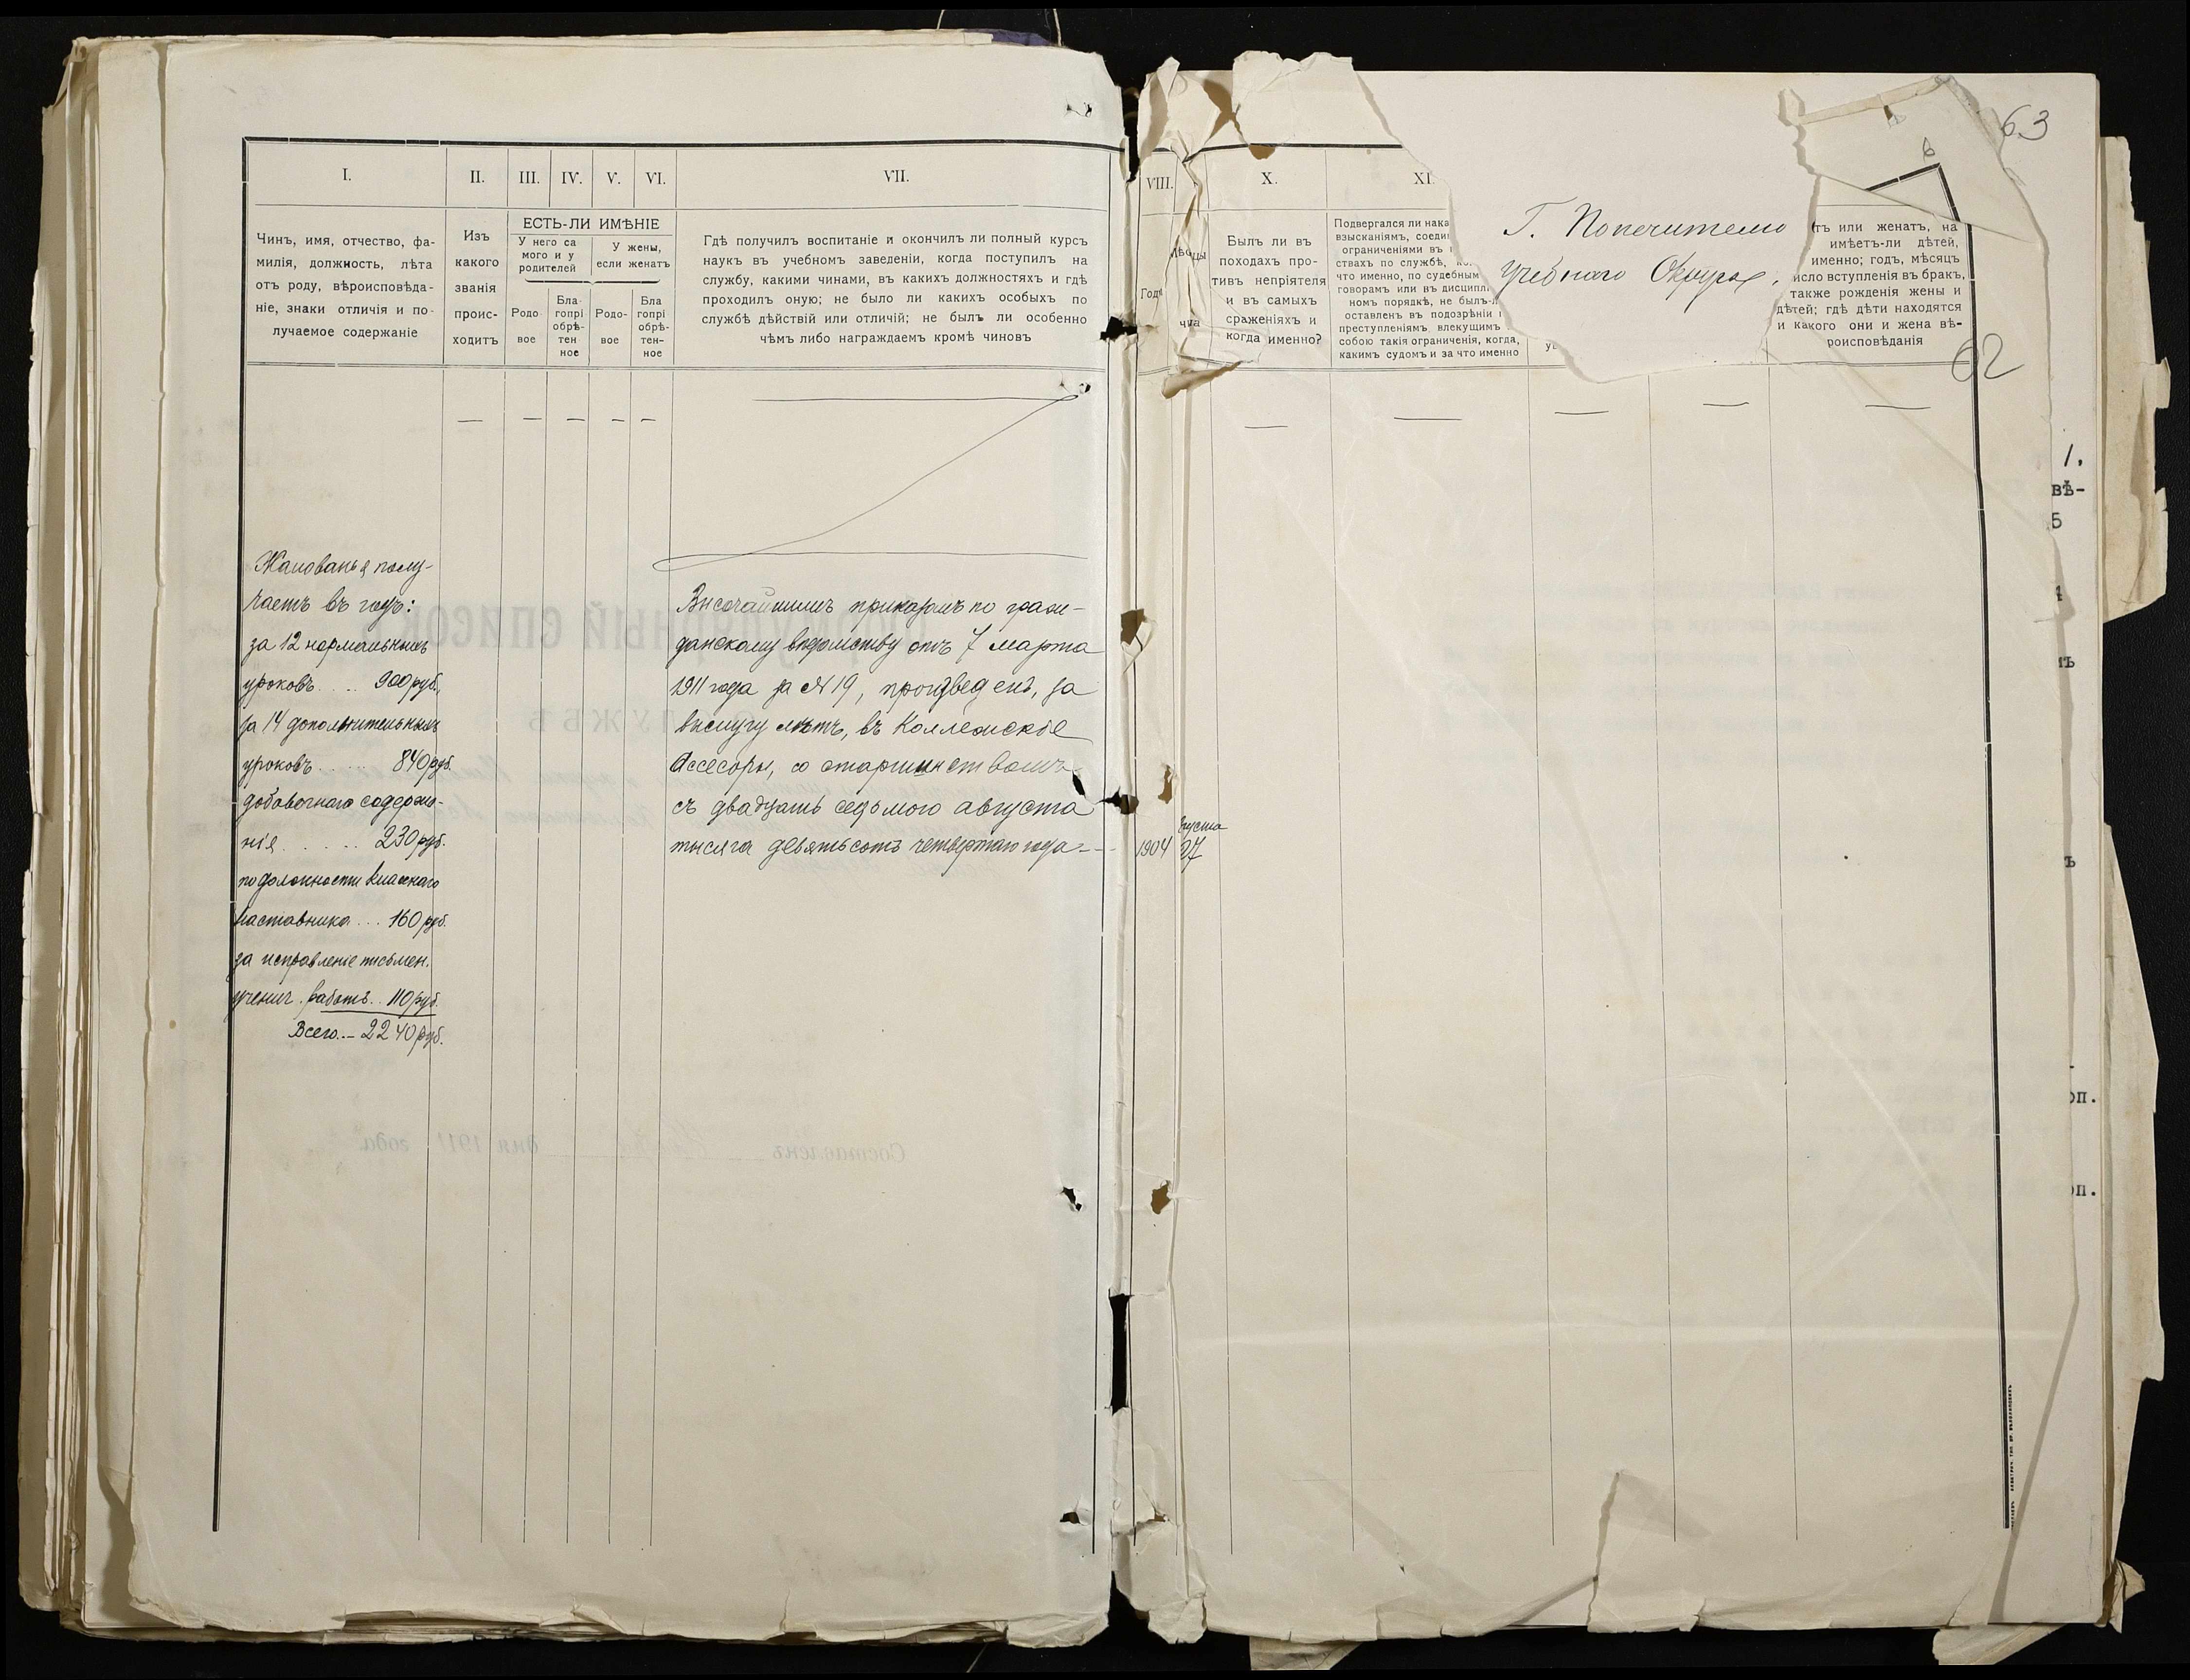 63
I.
II.
III.
IV.
V.
VI.
VII.
VIII.
X.
XI.
Чинъ, имя, отчество, фа-
милія, должность, лѣта
отъ роду, вѣроисповѣда-
ніе, знаки отличія и по-
лучаемое содержаніе
Изъ
какого
званія
проис-
ходитъ
ЕСТЬ-ЛИ ИМѢНІЕ
У него са
мого и у
родителей
У жены,
если женатъ
Родо-
вое
Бла-
гопрі
обрѣ-
тен
ное
Родо-
вое
Бла
гопрі
обрѣ-
тен-
ное
Гдѣ получилъ воспитаніе и окончилъ ли полный курсъ
наукъ въ учебномъ заведеніи, когда поступилъ на
службу, какими чинами, въ какихъ должностяхъ и гдѣ
проходилъ оную; не было ли какихъ особыхъ по
службѣ дѣйствій или отличій; не былъ ли особенно
чѣмъ либо награждаемъ кромѣ чиновъ
Годы
Былъ ли въ
походахъ про-
тивъ непріятеля
и въ самыхъ
сраженіяхъ и
когда именно?
Подвергался ли нака
взысканіямъ, соеди
ограниченіями въ
ствахъ по службѣ,
что именно, по судебным
говорамъ или въ дисципл
номъ порядкѣ, не былъ-л
оставленъ въ подозрѣніи
преступленіямъ влекущимъ
собою такія ограниченія, когда,
какимъ судомъ и за что именно
Г. Попечителю
Учебнаго Округа.
тъ или женатъ, на
имѣетъ-ли дѣтей,
именно; годъ, мѣсяцъ
исло вступленія въ бракъ,
также рожденія жены и
дѣтей; гдѣ дѣти находятся
и какого они и жена вѣ-
роисповѣданія
62
Жалованья полу-
чаетъ въ годъ:
за 12 нормальныхъ
уроковъ.... 900 руб.,
за 14 дополнительныхъ
уроковъ...... 840 руб.
добавочнаго содержа-
нія...... 230 руб.
по должности класснаго
наставника... 160 руб.
за исправленіе письмен.
ученич. работъ.. 110 руб.
Всего.— 2240 руб.
Высочайшимъ приказомъ по граж-
данскому вѣдомству отъ 7 марта
1911 года за № 19, произведенъ, за
выслугу лѣтъ, въ Коллежскіе
Ассесоры, со старшинствомъ
съ двадцать седьмого августа
тысяча девятьсотъ четвертаго года.—
1904
27
1.
вѣ-
5
оп.
оп.